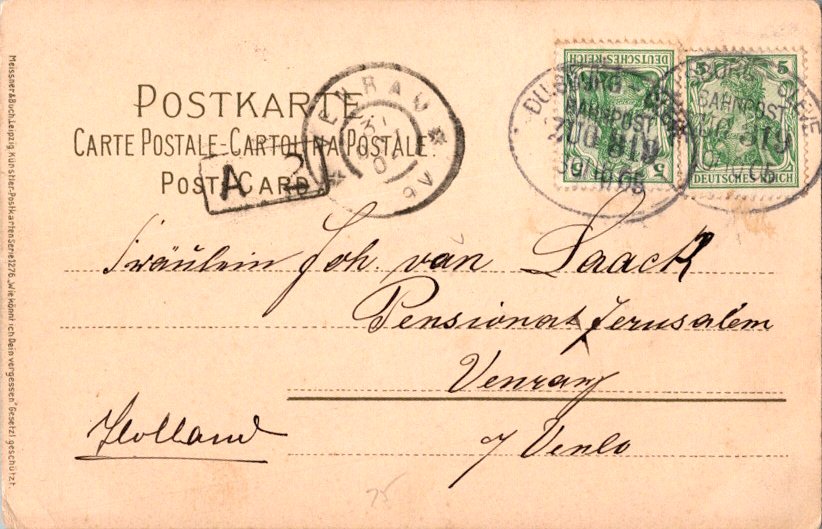 POSTKARTE
CARTE POSTALE-CARTOLINA POSTALE.
POST CARD
A 2
DEUTSCHES REICH
5
5
DEUTSCHES REICH
DUISBURG - CLEVE
BAHNPOST
ZUG 819
Fräulein Joh. van Laack
Pensionat Jerusalem
Venray
Holland
y Venlo
75
Meissner & Buch, Leipzig Künstler-Postkarten Serie 1276. „Wie könnt ich Dein vergessen" Gesetzl geschützt.